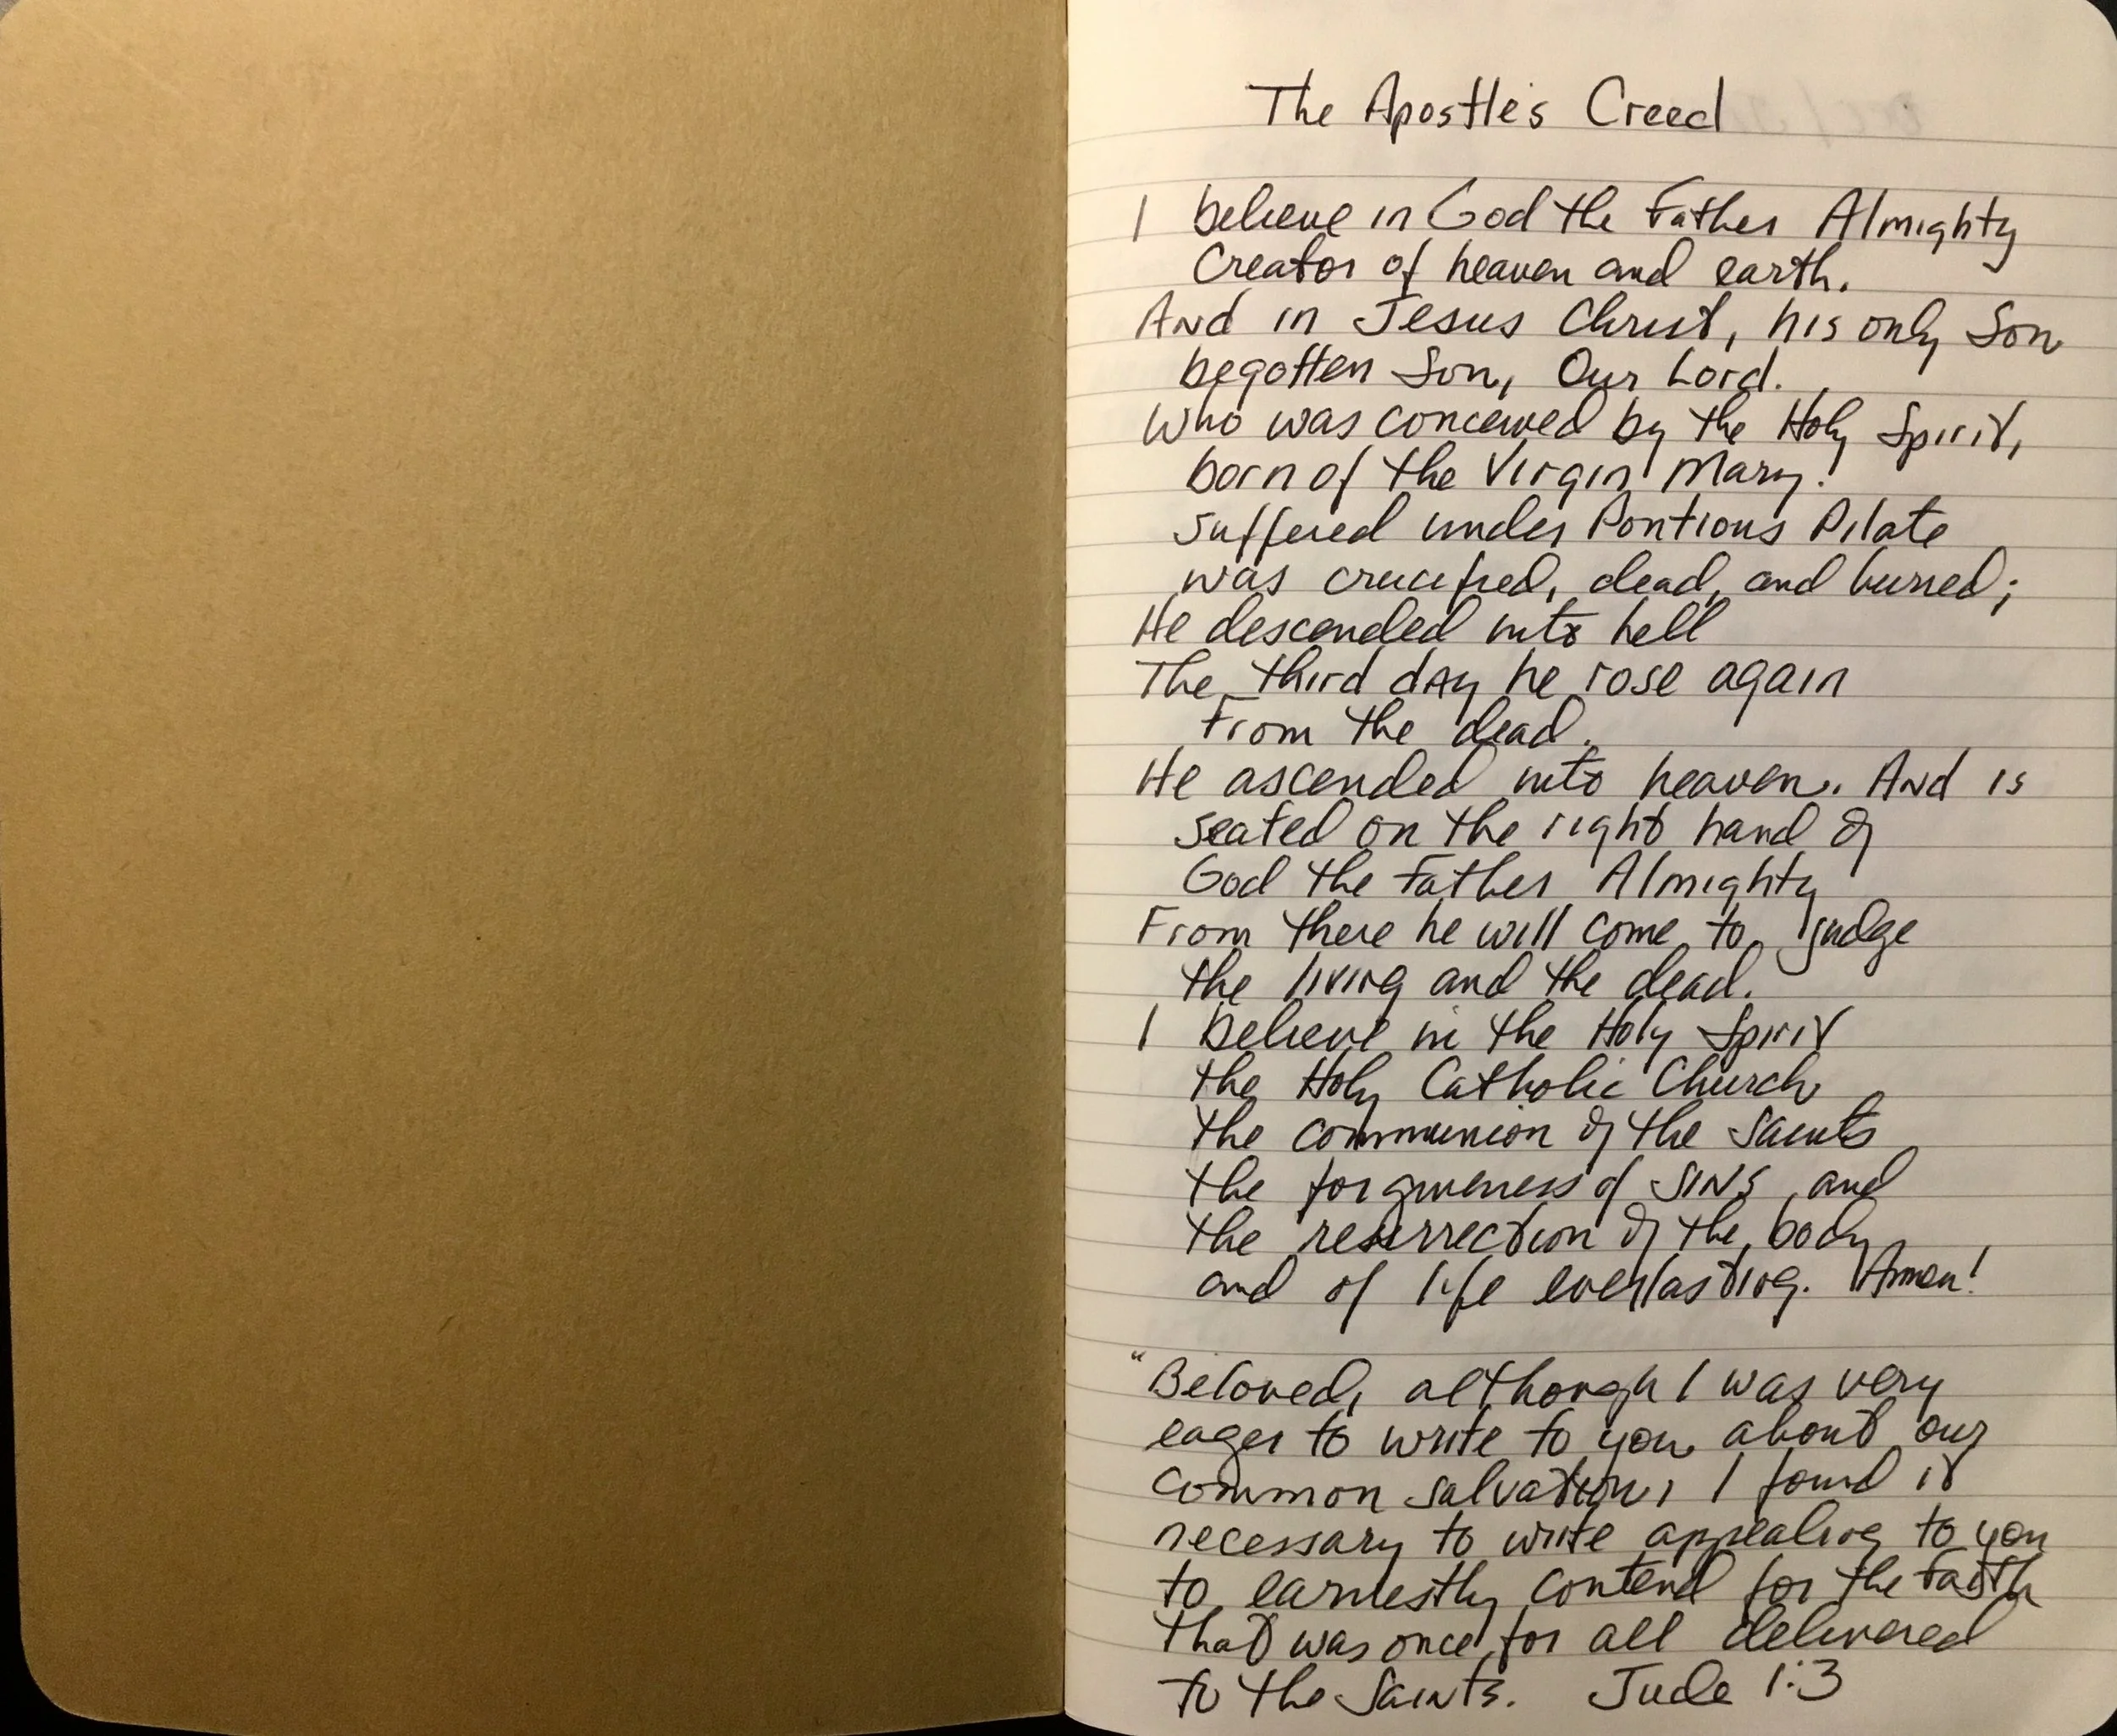 The Apostle's Creed
I believe in God the Father Almighty
Creator of heaven and earth.
And in Jesus Christ, his only Son
begotten Son, Our Lord.
Who was conceived by the Holy Spirit,
born of the Virgin Mary.
suffered under Pontious Pilate
was crucified, dead, and buried;
He descended into hell
The third day he rose again
From the dead.
He ascended into heaven. And is
seated on the right hand of
God the Father Almighty
From there he will come to judge
the living and the dead.
I believe in the Holy Spirit
the Holy Catholic Church
the communion of the saints
the forgiveness of sins, and
the resurrection of the body
and of life everlasting. Amen!
"Beloved, although I was very
eager to write to you about our
common salvation, I found it
necessary to write appealing to you
to earnestly contend for the faith
that was once for all delivered
to the Saints. Jude 1:3